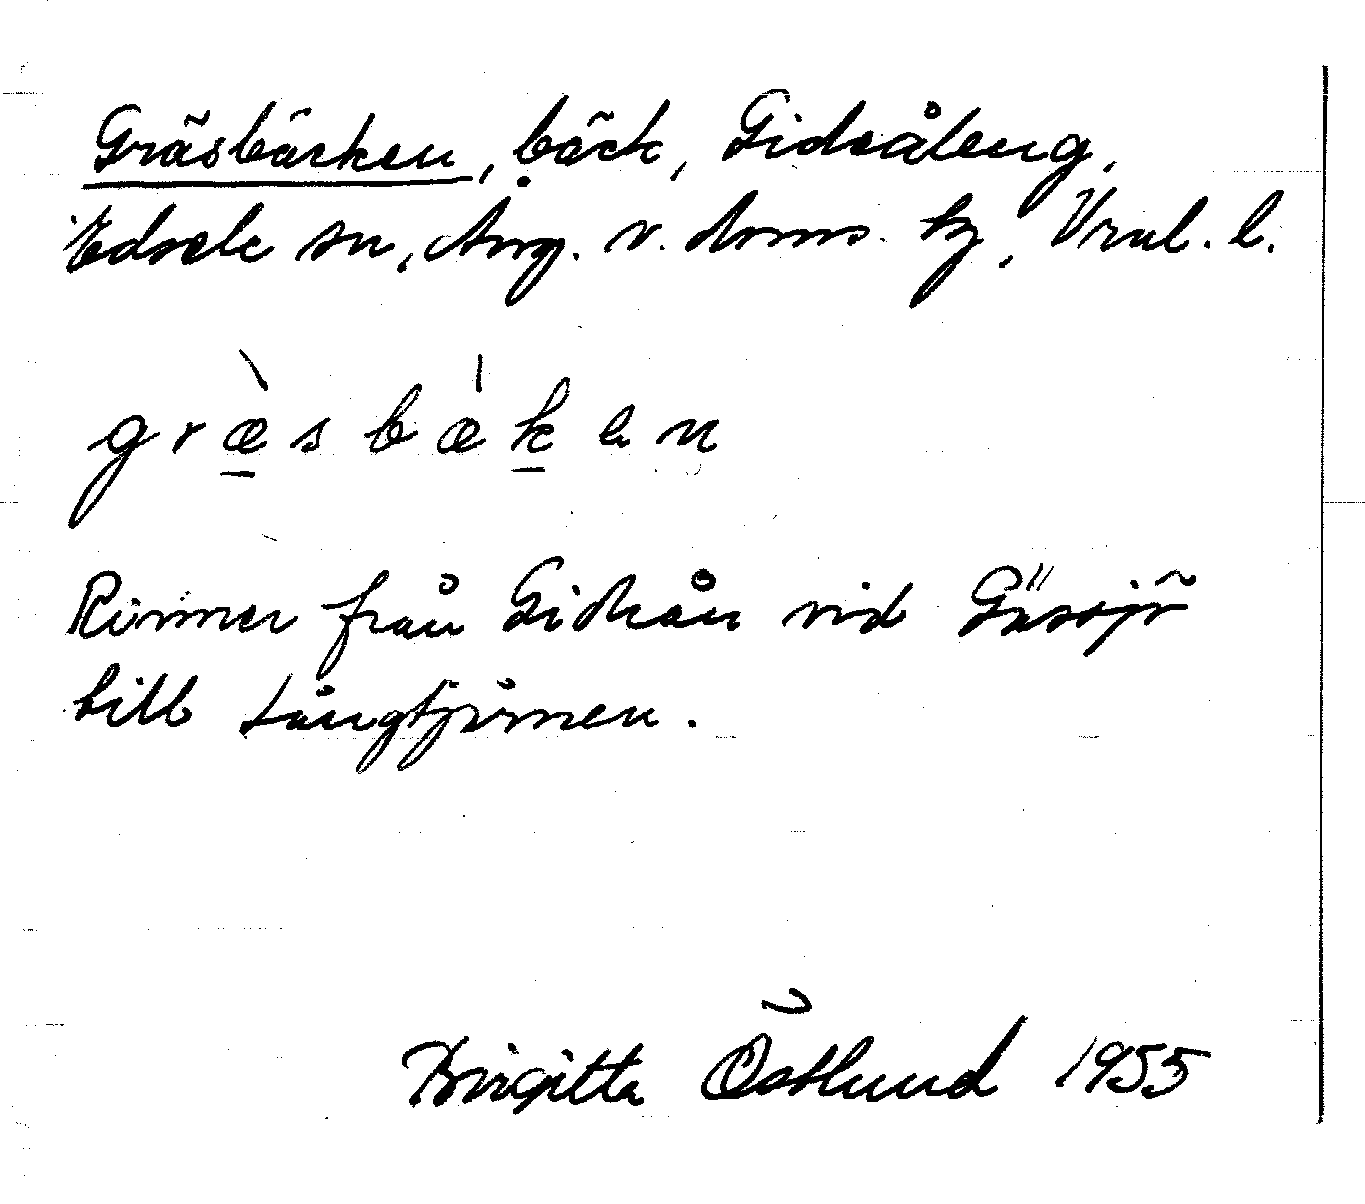 Gräsbäcken, bäck, Gideåleng,
Edsele sn, Ång. v. doms. tg, Vnl. l.
græsbækan
Rinner från Gideån vid Gässjö
till Långtjärnen.
Birgitta Östlund 1955